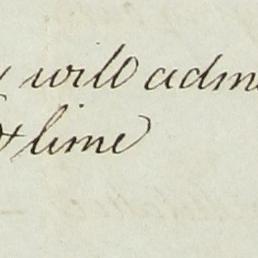 will adm
time